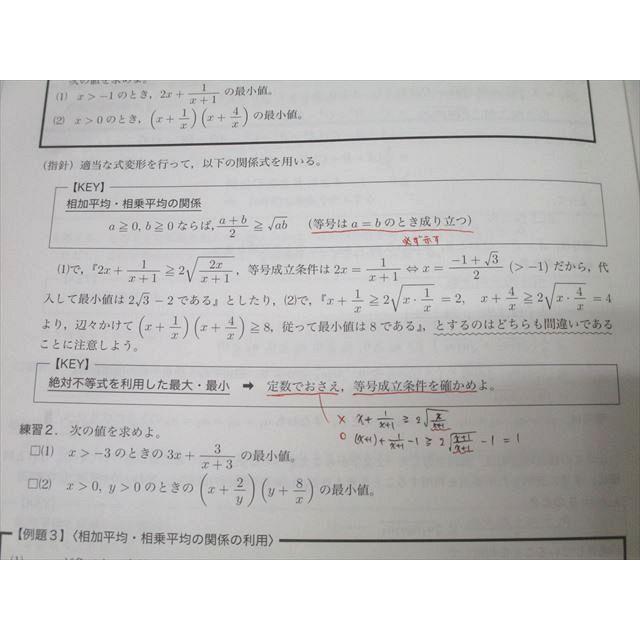 次の値を求めよ。
(1) x > −1 のとき, 2x + 1/(x+1) の最小値。
(2) x > 0 のとき, (x + 1/x)(x + 4/x) の最小値。
(指針) 適当な式変形を行って，以下の関係式を用いる。
【KEY】
相加平均・相乗平均の関係
a ≧ 0, b ≧ 0 ならば, (a+b)/2 ≧ √ab (等号は a = b のとき成り立つ)
必ず示す
(1)で,『2x + 1/(x+1) ≧ 2√(2x/(x+1)), 等号成立条件は 2x = 1/(x+1) ⇔ x = (−1+√3)/2 (> −1) だから, 代
入して最小値は 2√3 − 2 である』としたり, (2)で,『x + 1/x ≧ 2√(x・1/x) = 2, x + 4/x ≧ 2√(x・4/x) = 4
より, 辺々かけて (x + 1/x)(x + 4/x) ≧ 8, 従って最小値は 8 である』, とするのはどちらも間違いである
ことに注意しよう。
【KEY】
絶対不等式を利用した最大・最小 ➡ 定数でおさえ, 等号成立条件を確かめよ。
× x + 1/(x+1) ≧ 2√(x/(x+1))
○ (x+1) + 1/(x+1) − 1 ≧ 2√((x+1)/(x+1)) − 1 = 1
練習2. 次の値を求めよ。
□(1) x > −3 のときの 3x + 3/(x+3) の最小値。
□(2) x > 0, y > 0 のときの (x + 2/y)(y + 8/x) の最小値。
【例題3】〈相加平均・相乗平均の関係の利用〉